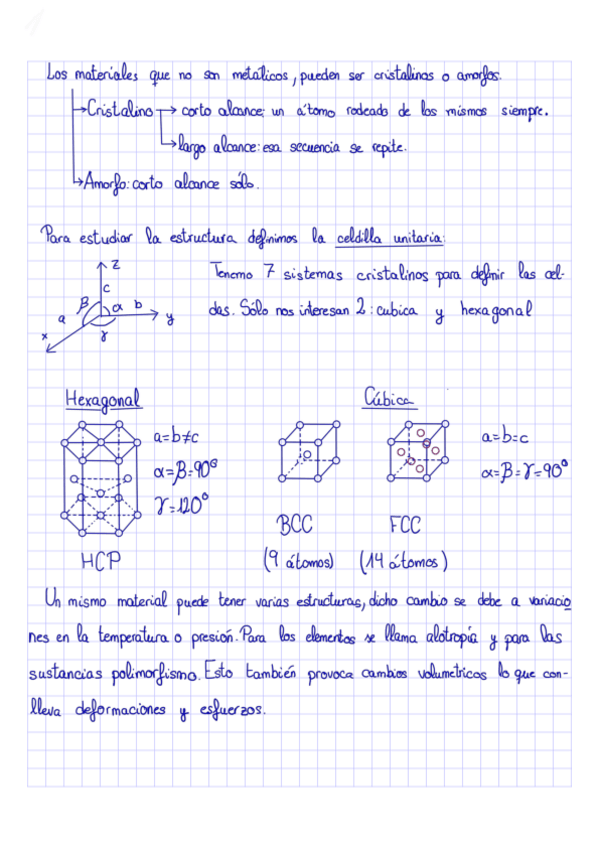 Los materiales que no son metálicos, pueden ser cristalinos o amorfos.
Cristalino → corto alcance: un átomo rodeado de los mismos siempre.
largo alcance: esa secuencia se repite.
Amorfo: corto alcance sólo.
Para estudiar la estructura definimos la celdilla unitaria:
z
c
β α b
a y
x γ
Tenemo 7 sistemas cristalinos para definir las cel-
das. Sólo nos interesan 2: cubica y hexagonal
Hexagonal
a=b≠c
α=β=90º
γ=120º
HCP
Cúbica
a=b=c
α=β=γ=90º
BCC FCC
(9 átomos) (14 átomos)
Un mismo material puede tener varias estructuras, dicho cambio se debe a variacio
nes en la temperatura o presión. Para los elementos se llama alotropía y para las
sustancias polimorfismo. Esto también provoca cambios volumetricos lo que con-
lleva deformaciones y esfuerzos.